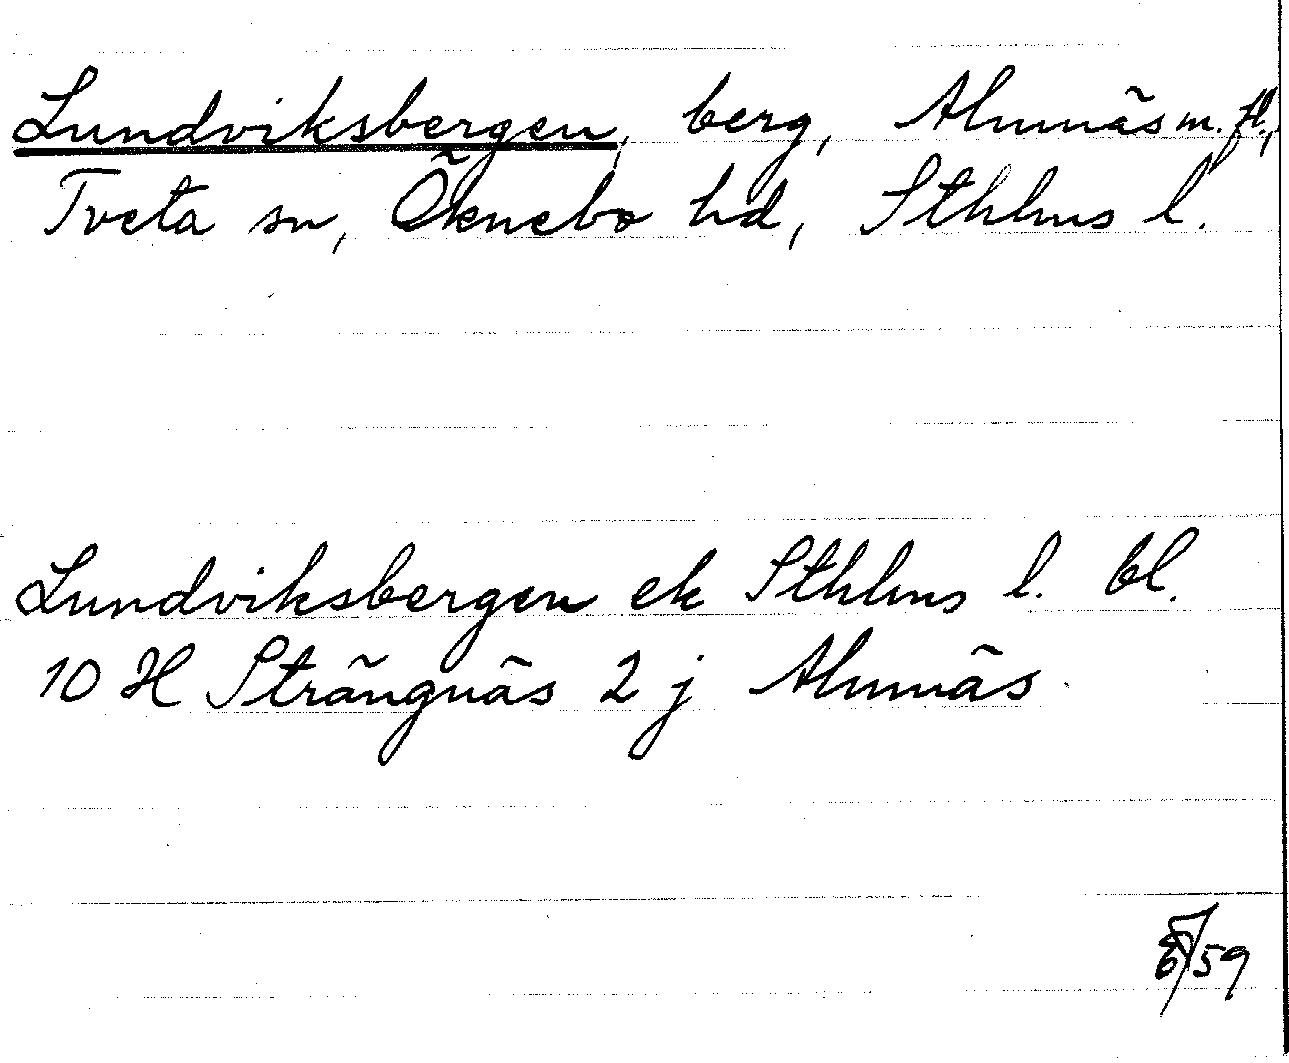 Lundviksbergen, berg, Almnäs m. fl.,
Tveta sn, Öknebo hd, Sthlms l.
Lundviksbergen ek Sthlms l. bl.
10 H Strängnäs 2 j Almnäs
/59